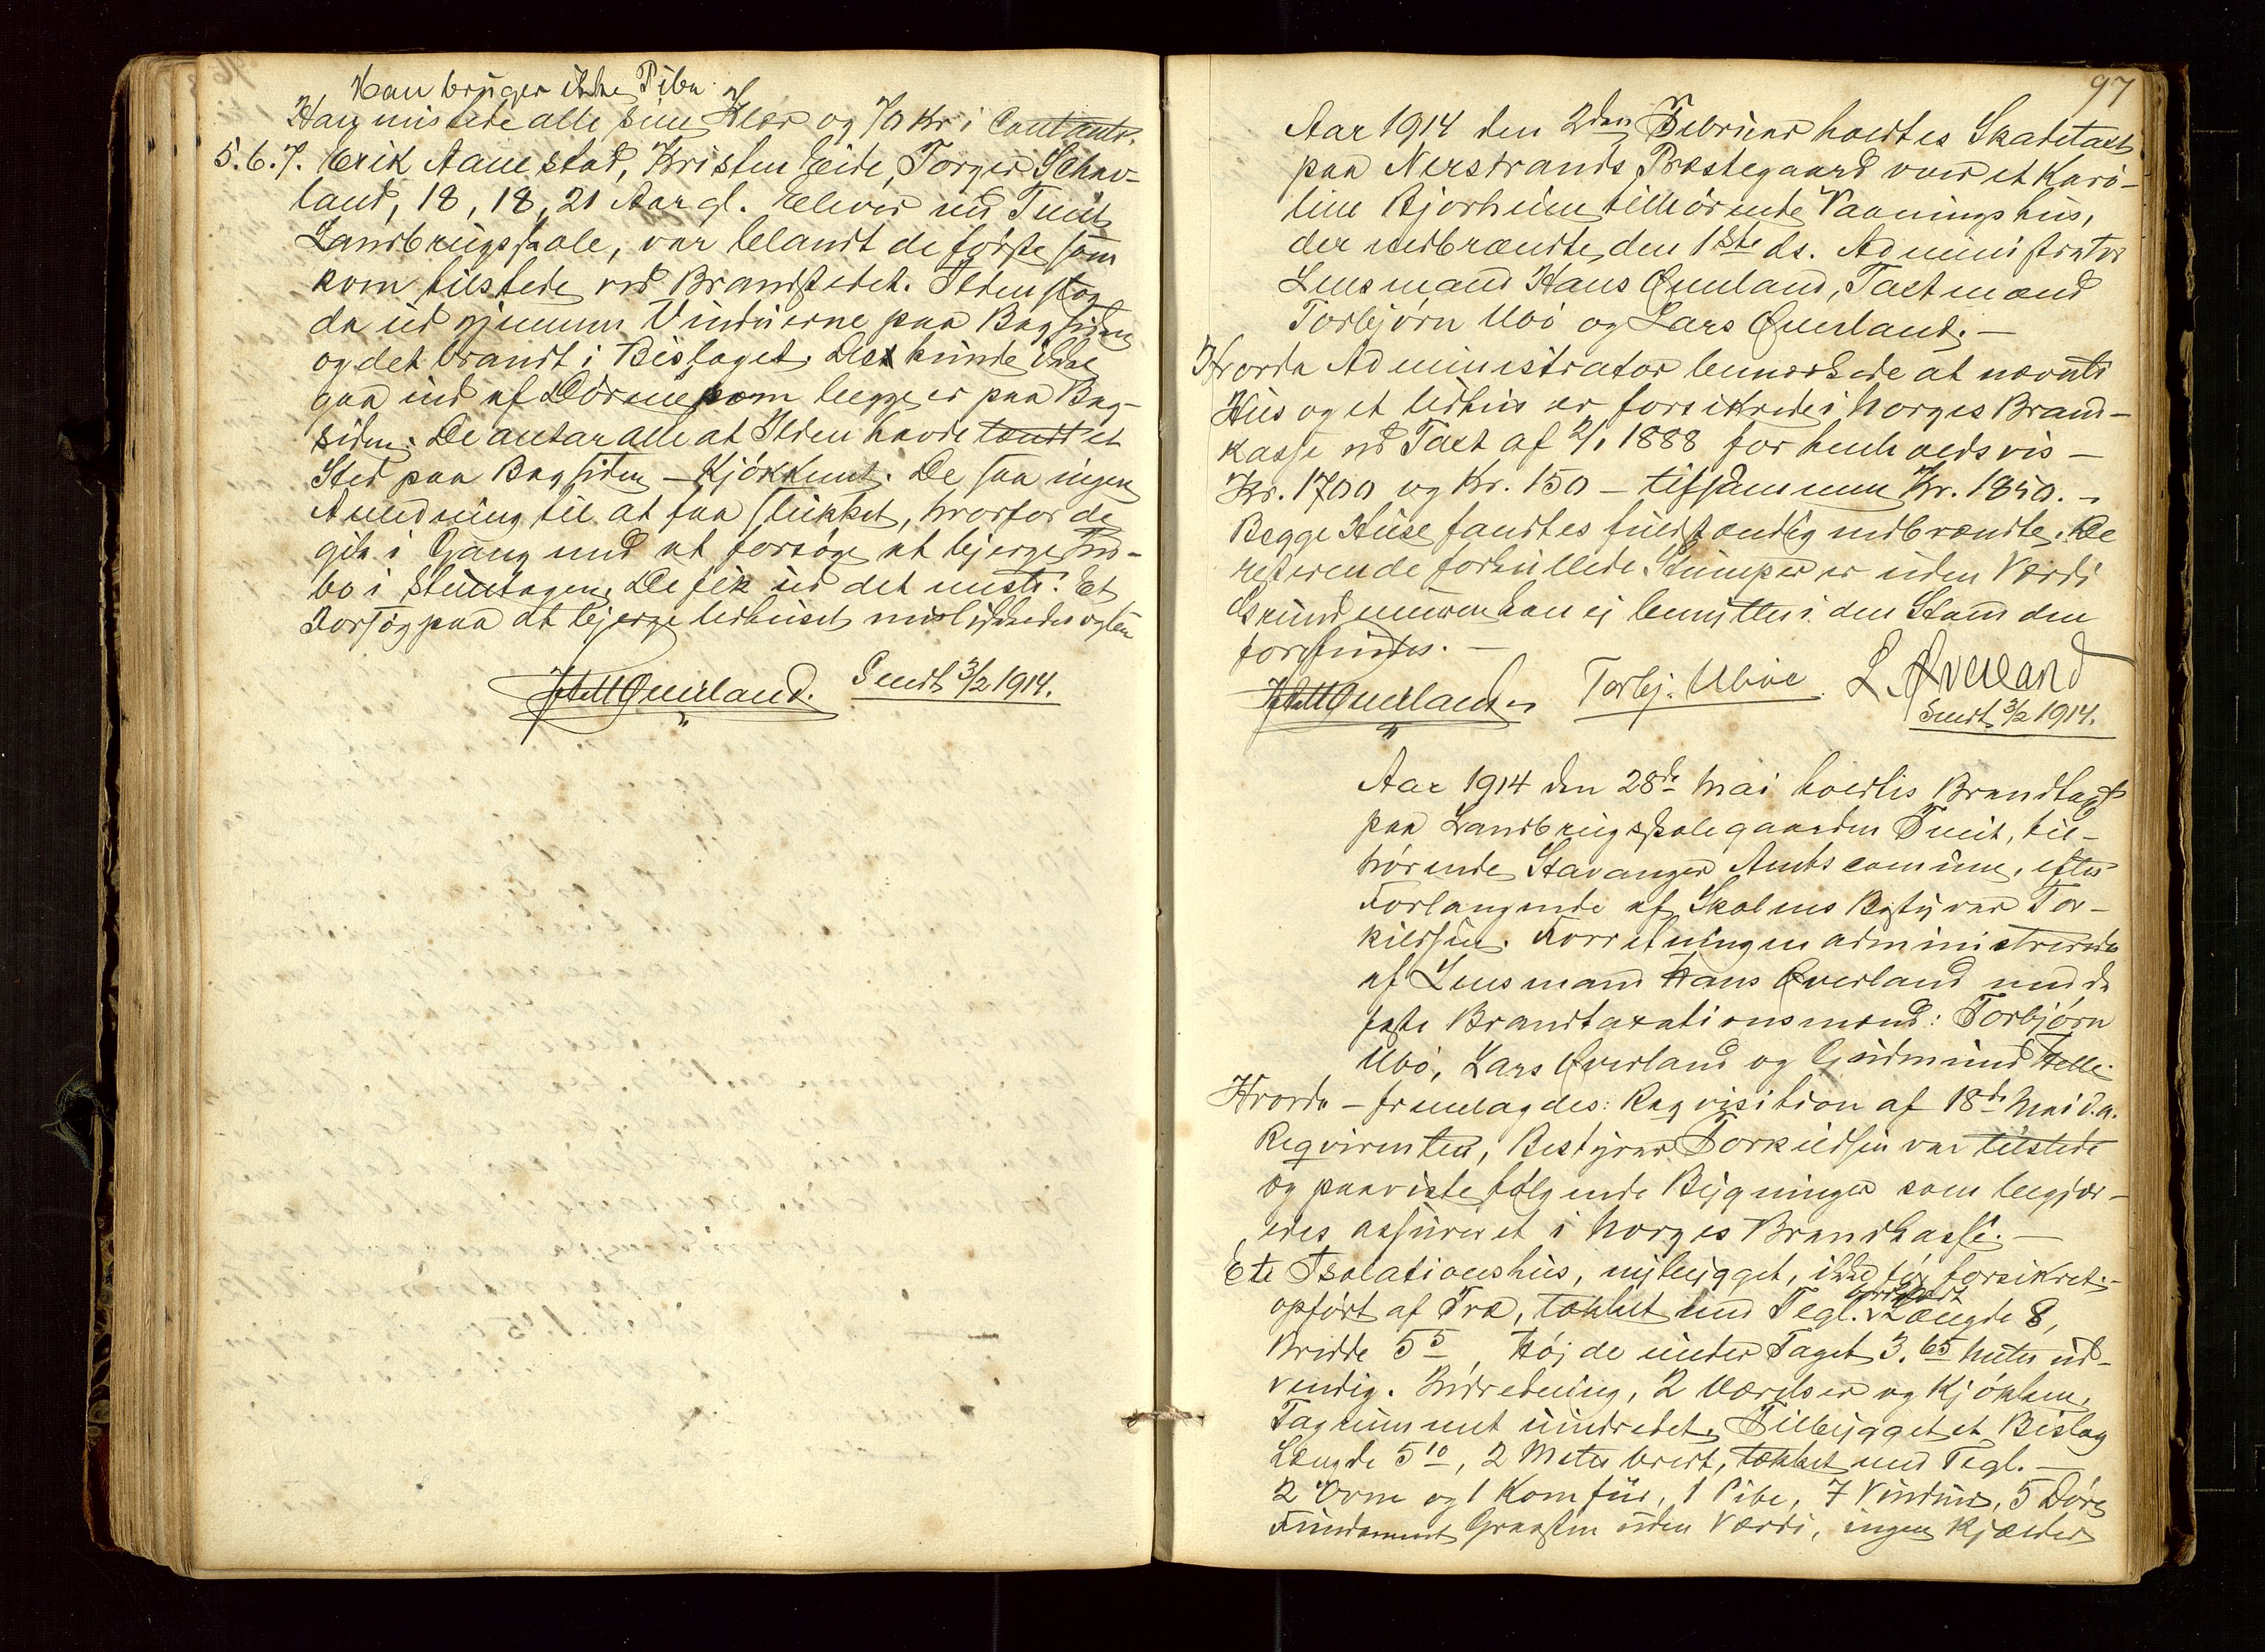 Han bruger ikke Pibe
Han mistede alle sine Klær og 70 Kr i Contante.
5.6.7. Erik Aanestad, Kristen Eide, Torger Schav-
land, 18, 18, 21 Aar gl. Elever ved Tveit
Landbrugsskole, var blandt de første som
kom tilstede ved Brandstedet. Ilden stod
da ud gjennem Vinduerne paa Bagsiden
og det brandt i Bislaget. De kunde ikke
gaa ind af Dørene som ligger paa Bag-
siden. De antar alle at Ilden havde tændt et
Sted paa Bagsiden - Kjøkkenet. De saa ingen
Anledning til at faa slukket, hvorfor de
gik i Gang med at forsøge at bjerge Ind-
bo i Stuetagen. De fik ud det meste. Et
Forsøg paa at bjerge Ildhuset mislykkedes
Øverland. Sendt 3/2 1914.
97
Aar 1914 den 2den Februar holdtes Skadetaxt
paa Nerstrands Præstegaard over et Karo-
line Bjorheim tilhørende Vaaningshus,
der nedbrændte den 1ste ds. Administrator
Lensmand Hans Øverland, Taxtmænd
Torbjørn Ubø og Lars Øverland. -
Hvorda Administrator bemærkede at nævnte
Hus og et Ildhus er forsikrede i Norges Brand-
kasse ved Taxt af 2/1 1888 for henholdsvis -
Kr. 1700 og Kr. 150 - tilsammen Kr. 1850. -
Begge Huse fandtes fuldstændig nedbrændte. De
resterende forkullede Stumper er uden Værdi
Grundmuren kan ej benyttes i den Stand den
forefindes. -
Øverland Torbj. Uboe. L. Øverland
Sendt 3/2 1914.
Aar 1914 den 28de Mai holdtes Brandtaxt
paa Landbrugsskolegaarden Tveit, til-
hørende Stavanger Amtscomune, efter
Forlangende af Skolens Bestyrer Tor-
kildsen. Forretningen administreredes
af Lensmand Hans Øverland med de
faste Brandtaxationsmænd: Torbjørn
Ubø, Lars Øverland og Gudmund Helle.
Hvorda - fremlagdes: Reqvisition af 18de Mai d.a.
Reqvirenten, Bestyrer Torkildsen var tilstede
og paaviste følgende Bygninger som begjær-
edes assureret i Norges Brandkasse. -
Et Isolationshus, nybygget, ikke før forsikret. -
opført af Træ, tækket med Tegl. bordklædt Længde 8,
Bredde 5 5, Højde under Taget 3.65 Meter ud-
vendig. Indredning, 2 Værelser og Kjøkken.
Tagrummet uindredet. Tilbygget et Bislag
Længde 5 10, 2 Meter bredt, tækket med Tegl. -
2 Ovne og 1 Komfur, 1 Pibe, 7 Vinduer, 5 Døre
Fundament Graasten uden Værdi, ingen Kjælder